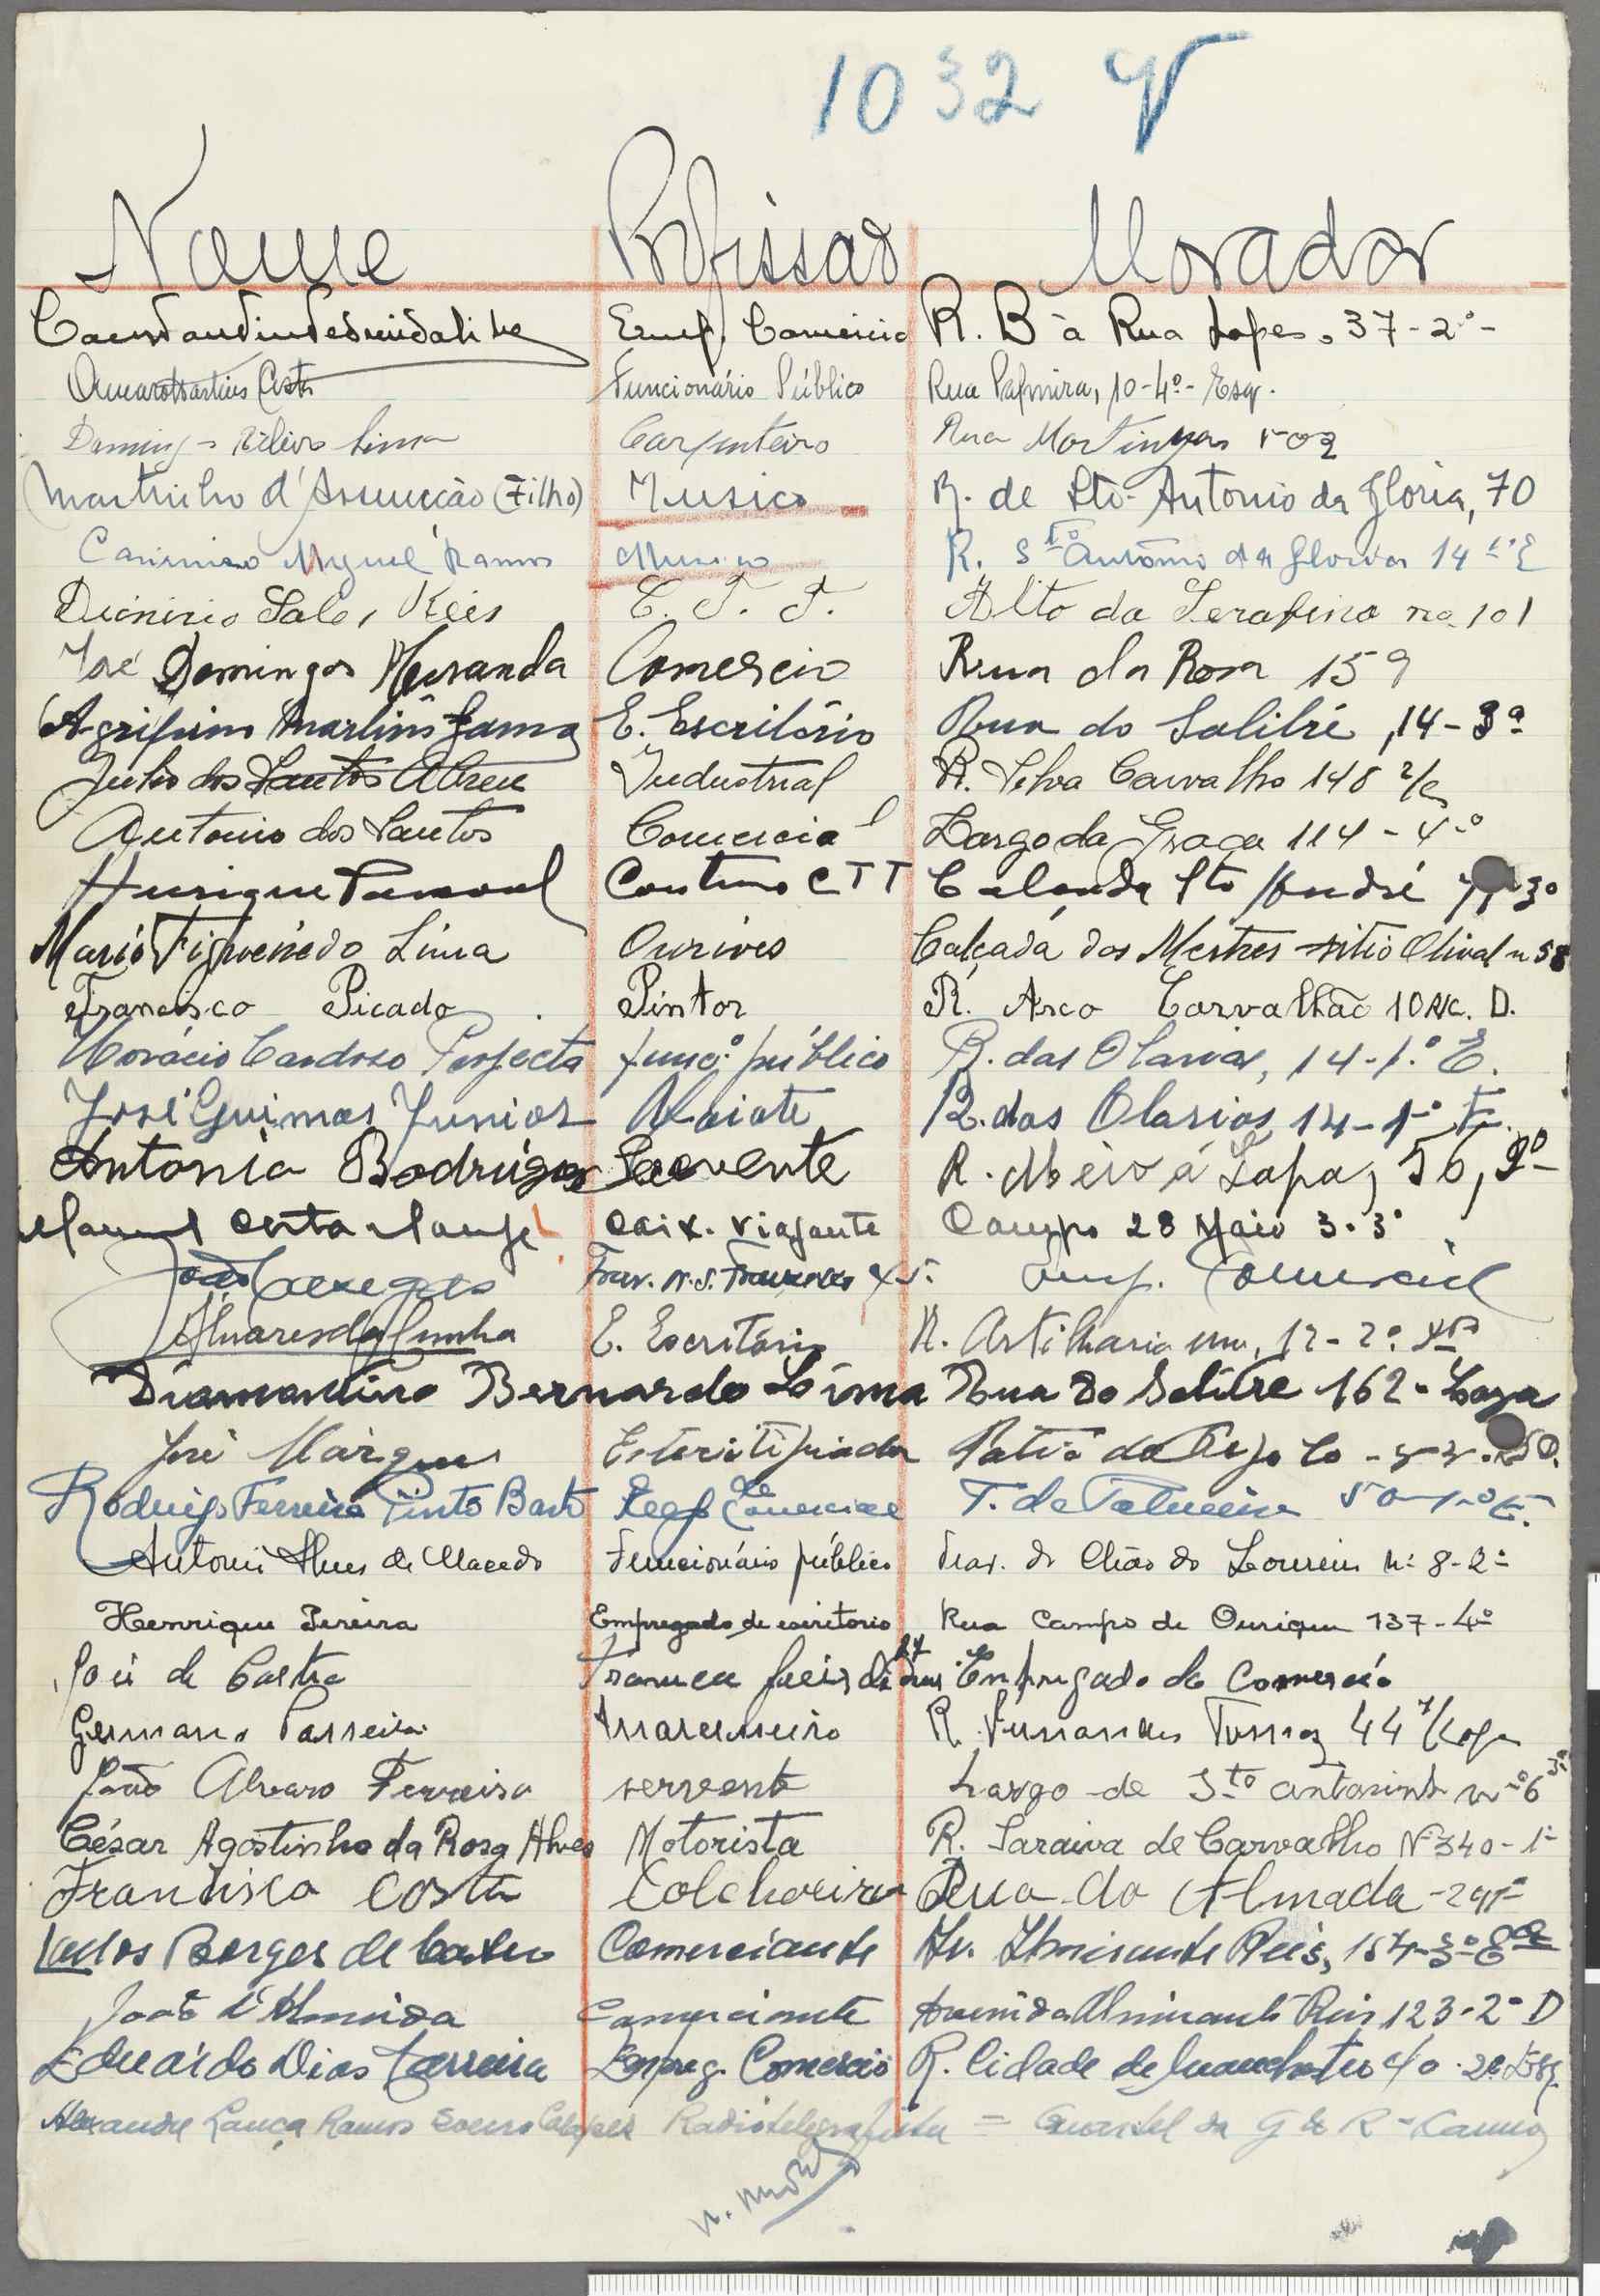 1032
Nome Profissão Morador
Emp. Comercio R. B à Rua Lopes, 37-2º-
Costa Funcionário Público Rua Palmira, 10-4º-Esq.
Domingos Ribeiro Lima Carpinteiro Rua
Martinho d'Assunção (Filho) Musico R. de Sto. Antonio da Gloria, 70
Casimiro Miguel Ramos Musico R. Sto Antonio da Gloria 14 1º E
Dionisio Sales Reis C. T. T. Alto da Serafina no 101
José Domingos Miranda Comercio Rua da Rosa 159
Martins Gama E. Escritório Rua do Salitre, 14-3º
Julio dos Santos Abreu Industrial R. Silva Carvalho 148
Antonio dos Santos Comercial Largo da Graça 114-4º
Henrique Continuo CTT Calçada Sto André 3º
Mario Figueirêdo Lima Ourives Calçada dos Mestres sitio Olival n 58
Francisco Picado Pintor R. Arco Carvalhão 10 R/C. D.
Horácio Cardoso Perfecta funcº. público R. das Olarias, 14-1.º E.
José Guimas Junior Alaiate R. das Olarias 14-1º E.
Antonio Rodrigues Servente R. Meio á Lapa, 56, 2º-
Manuel Costa caix. viajante Campo 28 Maio 3-3º
João Trav. N. S. Emp. Comercial
Alvares da Cunha E. Escritório R. Artilharia um, 12-2º
Diamantino Bernardo Lima Rua do Salitre 162-
José Marques Patio do
Rodrigo Ferreira Pinto Basto T. da Palmeira 50-1º E.
Antonio Alves de Macedo Funcionário público Trav. do Chão do Loureiro Nº 8-2º
Henrique Pereira Empregado de escritorio Rua Campo de Ourique 137-4º
José de Castro Empregado do Comercio
Germano Parreira Marceneiro R. Fernandes Tomaz 44
João Alvaro Ferreira servente Largo de Sto antoninho nº 6
César Agostinho da Rosa Alves Motorista R. Saraiva de Carvalho Nº 340-1º
Francisco Costa Colchoeiro Rua do Almada
Carlos Borges de Castro Comerciante Av. Almirante Reis, 154-3º Esq
João d'Almeida Comerciante Avenida Almirante Reis 123-2º D
Eduardo Dias Ferreira Empreg. Comercio R. Cidade de Manchester 2º Esq.
Alexandre Lança Ramos Radiotelegrafista = Quartel da G N R - Carmo